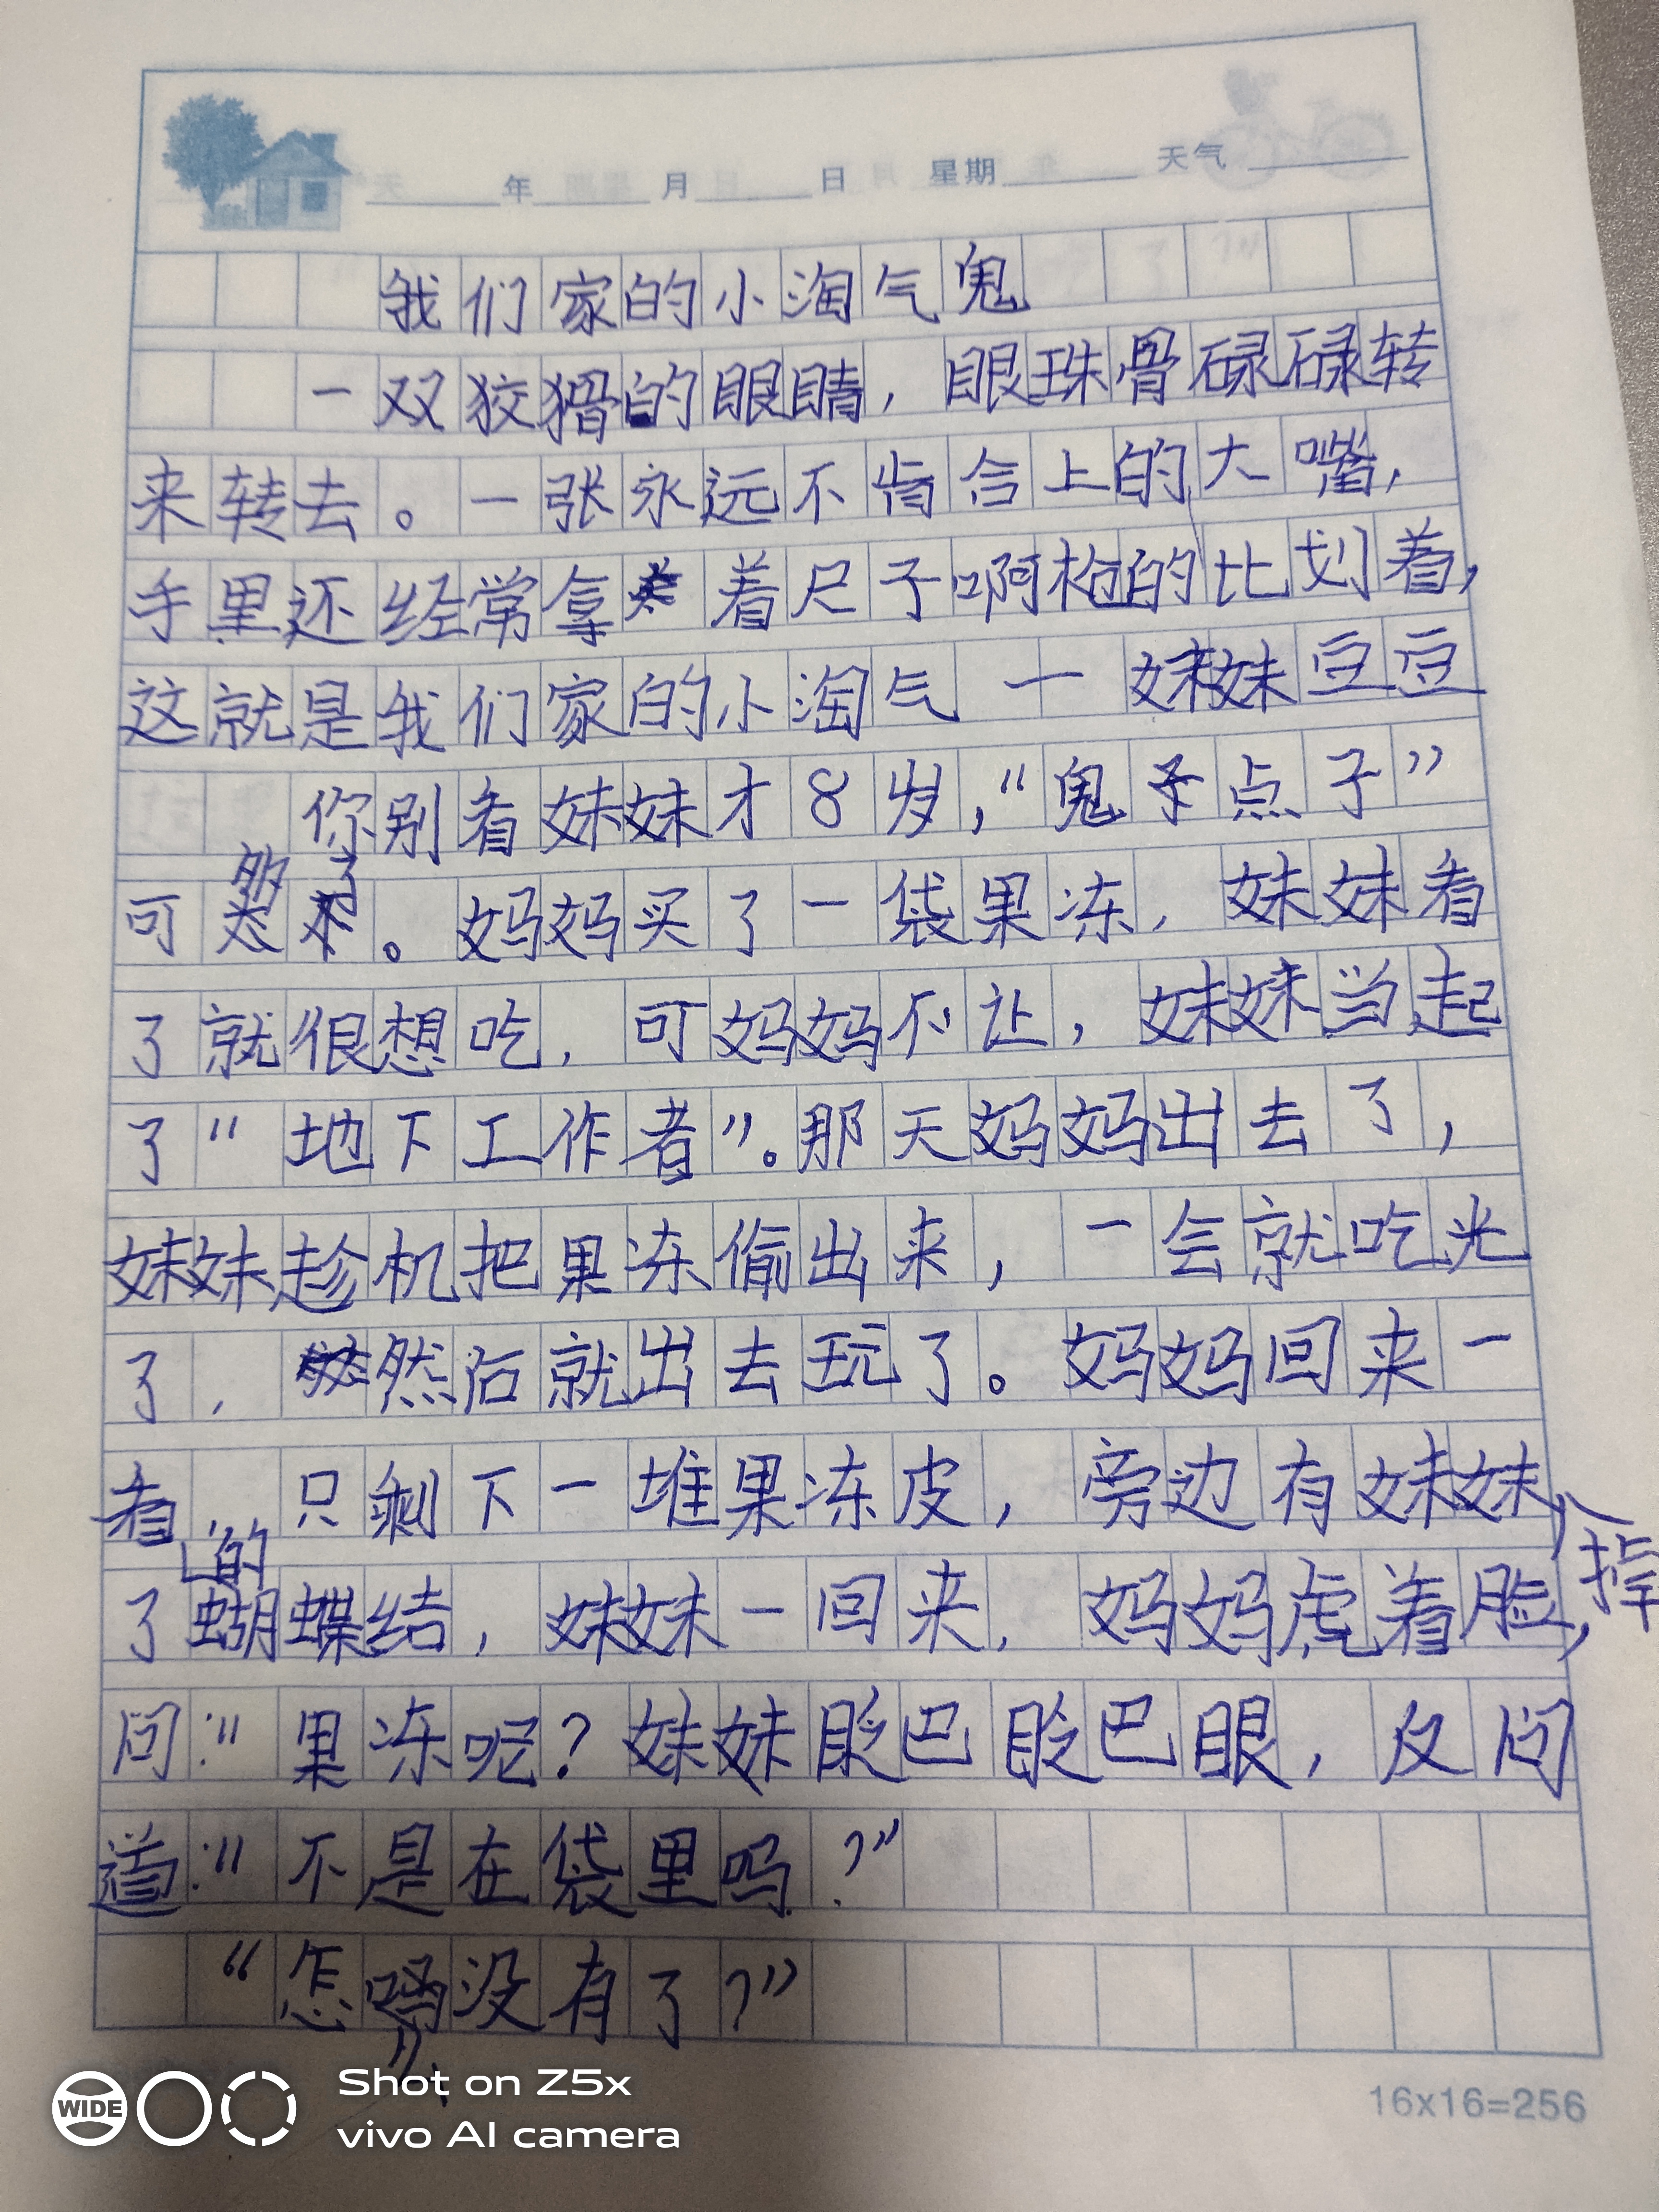 年 月 日 星期 天气
我们家的小淘气鬼
一双狡猾的眼睛,眼珠骨碌碌转
来转去。一张永远不肯合上的大嘴,
手里还经常拿着尺子啊枪的比划着,
这就是我们家的小淘气一妹妹豆豆
你别看妹妹才8岁,“鬼子点子”
可够了。妈妈买了一袋果冻,妹妹看
了就很想吃,可妈妈不让,妹妹当起
了“地下工作者”。那天妈妈出去了,
妹妹趁机把果冻偷出来,一会就吃光
了,然后就出去玩了。妈妈回来一
看,只剩下一堆果冻皮,旁边有妹妹掉
了的蝴蝶结,妹妹一回来,妈妈虎着脸,
问:“果冻呢?妹妹眨巴眨巴眼,反问
道:“不是在袋里吗?”
“怎没有了?”
16x16=256
WIDE
Shot on Z5x
vivo AI camera